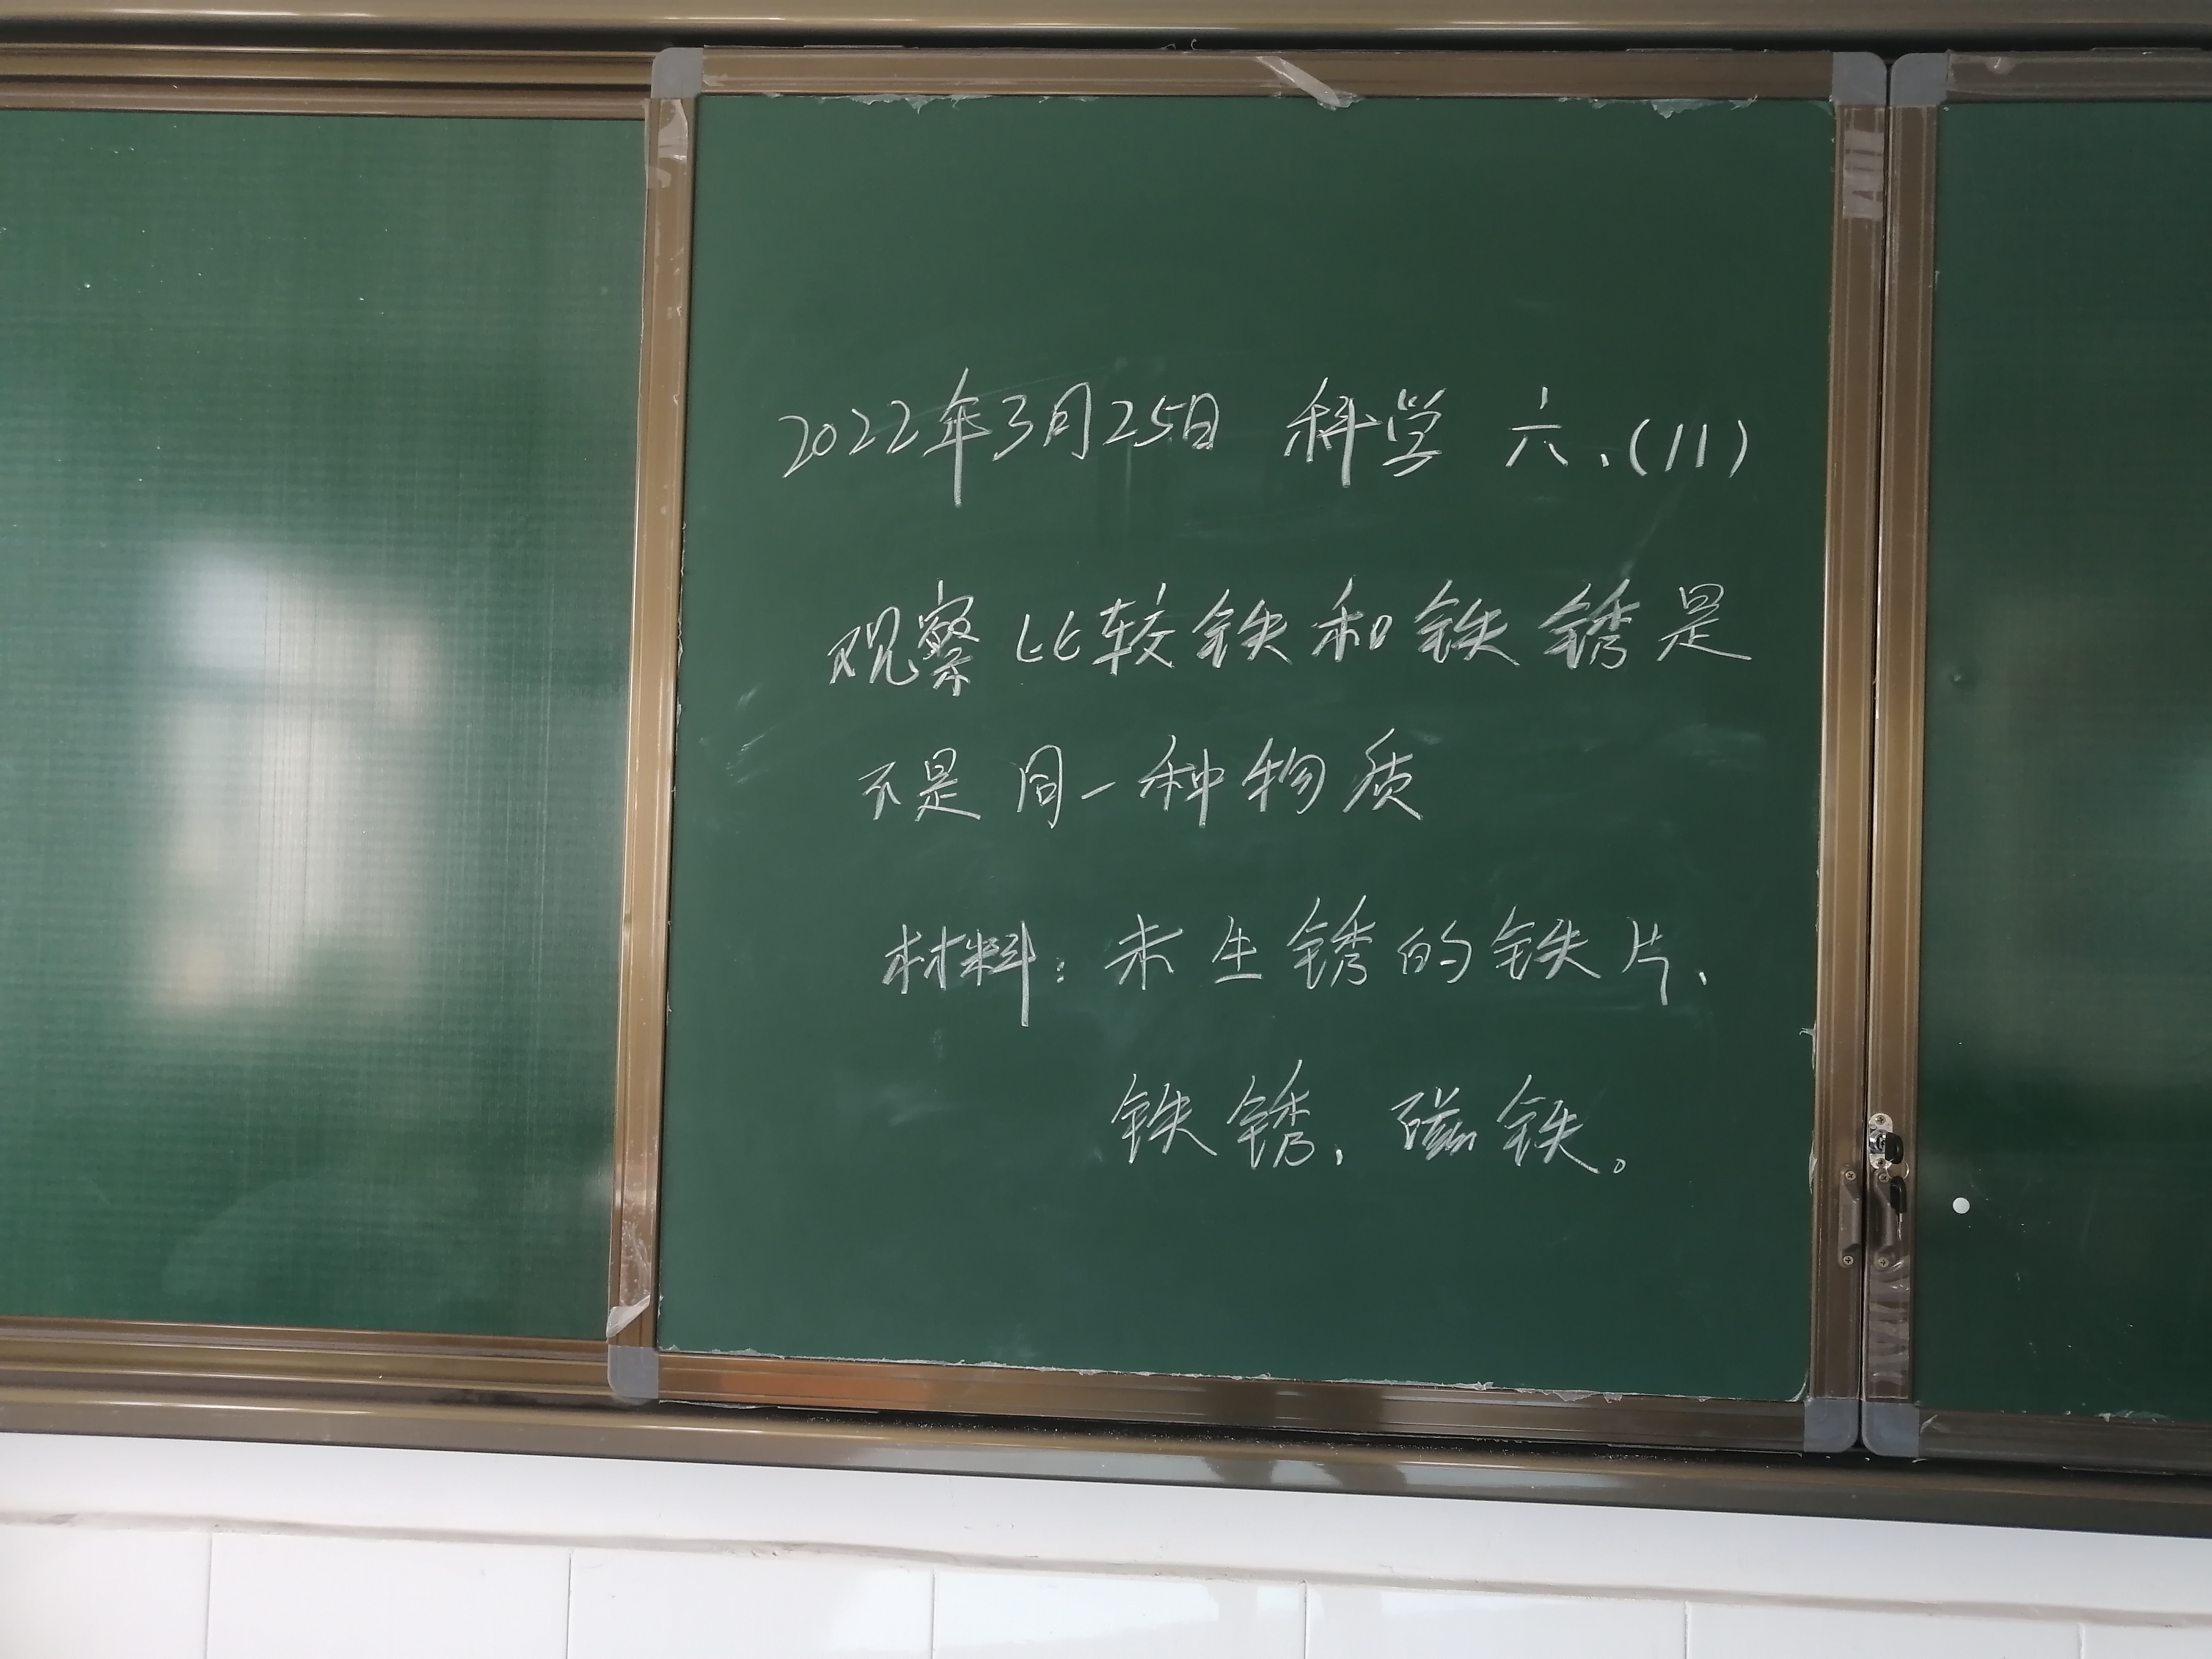 2022年3月25日 科学 六、(11)
观察比较铁和铁锈是
不是同一种物质
材料：未生锈的铁片、
铁锈、磁铁。